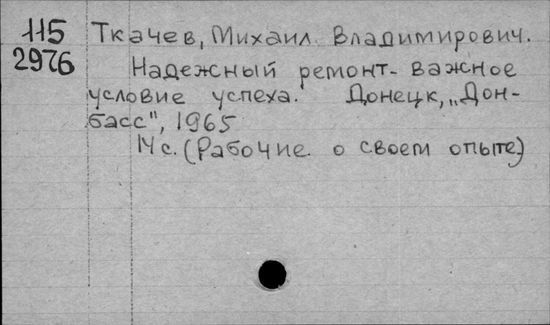 115
2976
Ткачев, Михаил Владимирович.
Надежный ремонт - важное
условие успеха. Донецк, „Дон-
басс", 1965
14 с. (Рабочие о своем опыте)